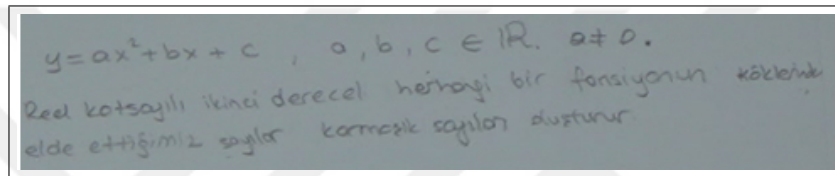 y = ax² + bx + c , a, b, c ∈ ℝ. a ≠ 0.
Reel katsayılı ikinci derecel herhangi bir fonsiyonun köklerinde
elde ettiğimiz sayılar karmaşık sayıları oluşturur